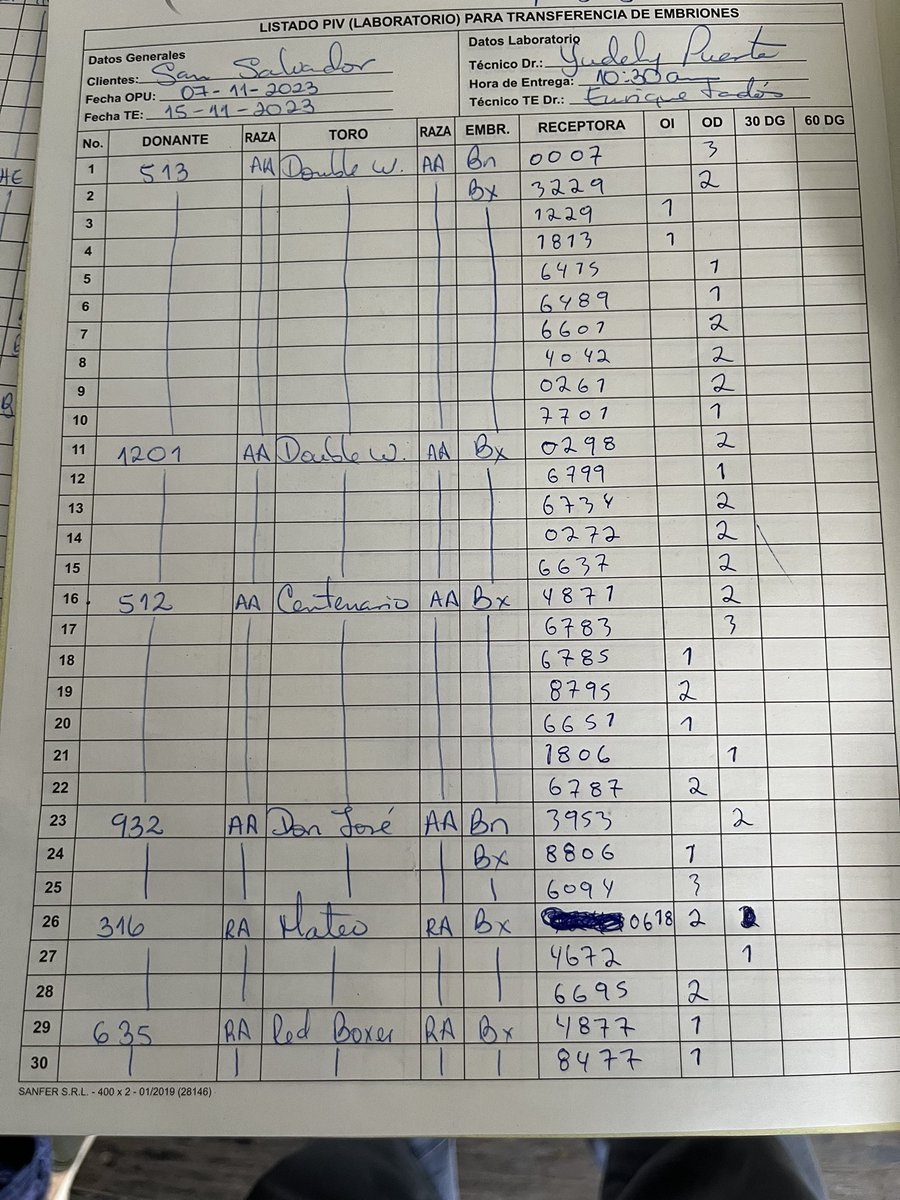 LISTADO PIV (LABORATORIO) PARA TRANSFERENCIA DE EMBRIONES
Datos Generales
Clientes: San Salvador
Fecha OPU: 07-11-2023
Fecha TE: 15-11-2023
Datos Laboratorio
Técnico Dr.: Yudely Puerta
Hora de Entrega: 10:30 am
Técnico TE Dr.: Enrique
No. DONANTE RAZA TORO RAZA EMBR. RECEPTORA OI OD 30 DG 60 DG
1 513 AA Double W. AA Bn 0007 3
2 Bx 3229 2
3 1229 1
4 1813 1
5 6475 1
6 6489 1
7 6601 2
8 4042 2
9 0261 2
10 7701 1
11 1201 AA Double W. AA Bx 0298 2
12 6799 1
13 6734 2
14 0272 2
15 6637 2
16 512 AA Centenario AA Bx 4871 2
17 6783 3
18 6785 1
19 8795 2
20 6651 1
21 1806 1
22 6787 2
23 932 AA Don José AA Bn 3953 2
24 Bx 8806 1
25 6094 3
26 316 RA Mateo RA Bx 0618 2
27 4672 1
28 6695 2
29 635 RA Red Boxer RA Bx 4877 1
30 8477 1
SANFER S.R.L. - 400 x 2 - 01/2019 (28146)